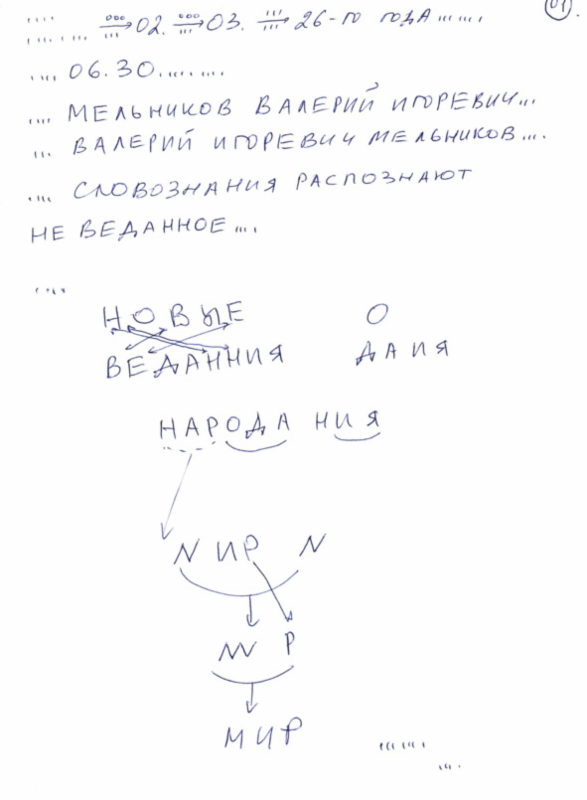 01.
.... ...... ⇒ 02. ⇒ 03. ⇒ 26-го года .......
.... 06.30.........
.... МЕЛЬНИКОВ ВАЛЕРИЙ ИГОРЕВИЧ...
... ВАЛЕРИЙ ИГОРЕВИЧ МЕЛЬНИКОВ....
.... СЛОВОЗНАНИЯ РАСПОЗНАЮТ
НЕ ВЕДАННОЕ ....
....
НОВЫЕ О
ВЕДАННИЯ ДАИЯ
НАРОДА НИЯ
N ИР N
NN Р
МИР ......
...